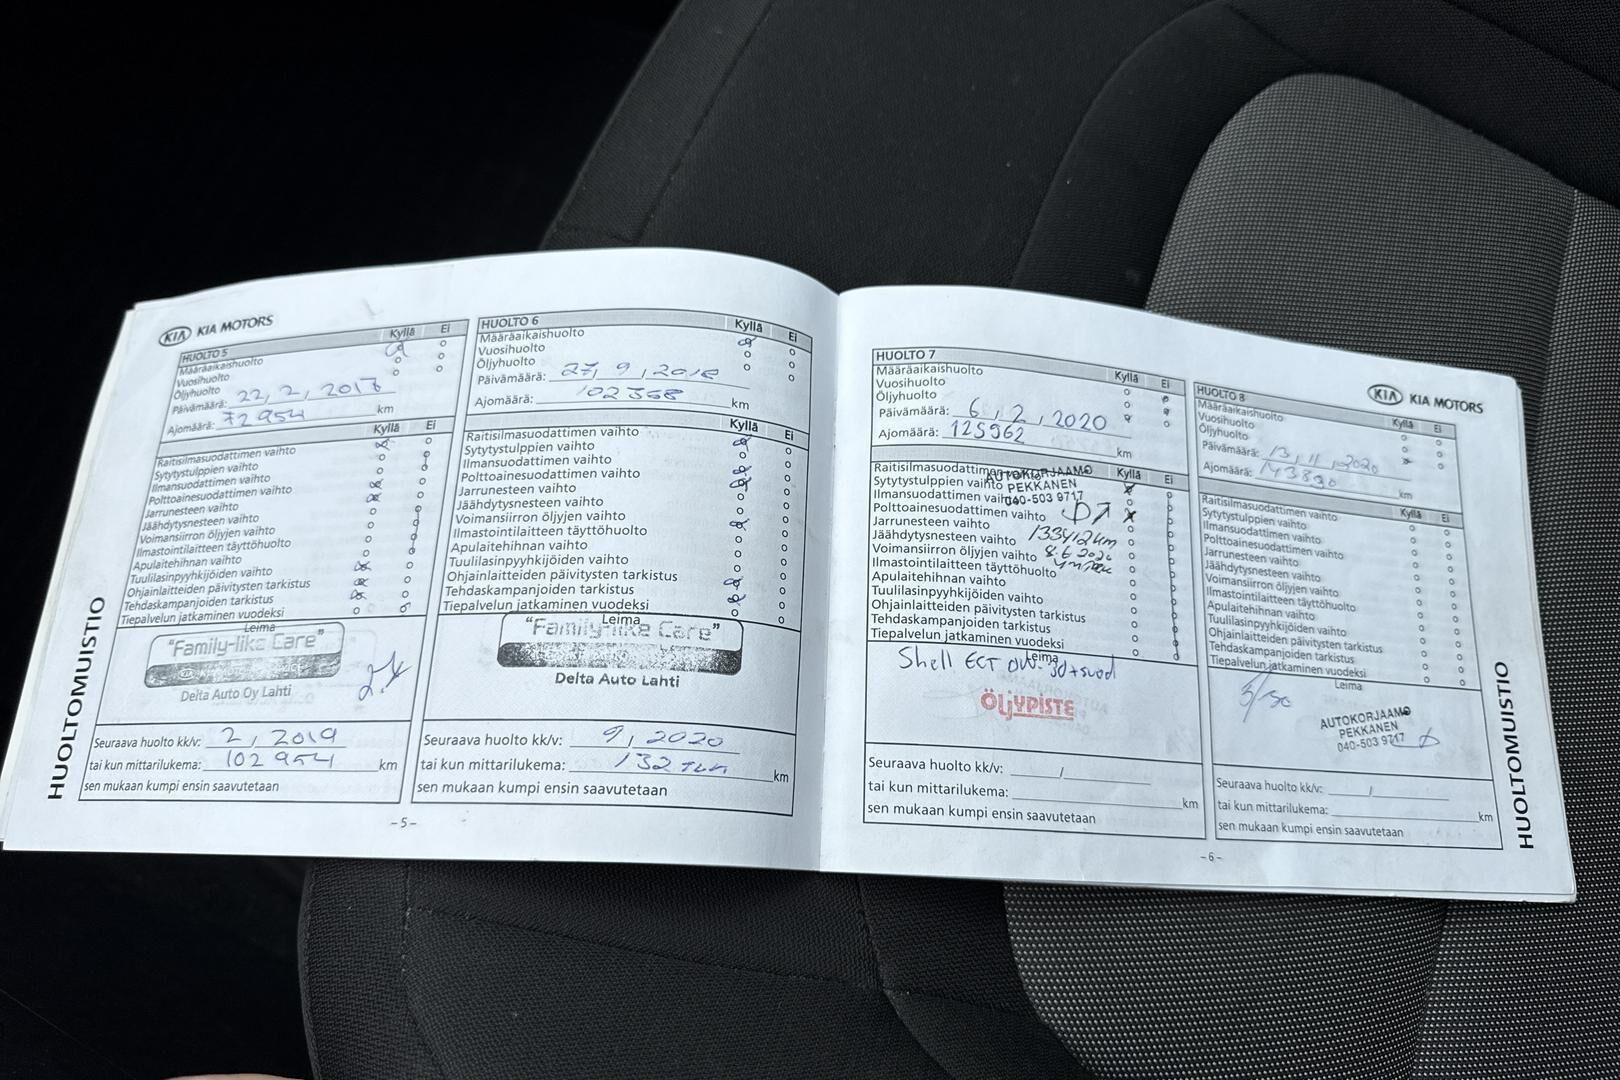 KIA KIA MOTORS
HUOLTOMUISTIO
HUOLTO 5
Kyllä Ei
Määräaikaishuolto
Vuosihuolto
Öljyhuolto
Päivämäärä: 22, 2, 2017
Ajomäärä: 72 954 km
Kyllä Ei
Raitisilmasuodattimen vaihto
Sytytystulppien vaihto
Ilmansuodattimen vaihto
Polttoainesuodattimen vaihto
Jarrunesteen vaihto
Jäähdytysnesteen vaihto
Voimansiirron öljyjen vaihto
Ilmastointilaitteen täyttöhuolto
Apulaitehihnan vaihto
Tuulilasinpyyhkijöiden vaihto
Ohjainlaitteiden päivitysten tarkistus
Tehdaskampanjoiden tarkistus
Tiepalvelun jatkaminen vuodeksi
Leima
"Family-like Care"
Delta Auto Oy Lahti
Seuraava huolto kk/v: 2, 2019
tai kun mittarilukema: 102 954 km
sen mukaan kumpi ensin saavutetaan
HUOLTO 6
Kyllä Ei
Määräaikaishuolto
Vuosihuolto
Öljyhuolto
Päivämäärä: 27, 9, 2018
Ajomäärä: 102 368 km
Kyllä Ei
Raitisilmasuodattimen vaihto
Sytytystulppien vaihto
Ilmansuodattimen vaihto
Polttoainesuodattimen vaihto
Jarrunesteen vaihto
Jäähdytysnesteen vaihto
Voimansiirron öljyjen vaihto
Ilmastointilaitteen täyttöhuolto
Apulaitehihnan vaihto
Tuulilasinpyyhkijöiden vaihto
Ohjainlaitteiden päivitysten tarkistus
Tehdaskampanjoiden tarkistus
Tiepalvelun jatkaminen vuodeksi
Leima
"Family-like Care"
Delta Auto Lahti
Seuraava huolto kk/v: 9, 2020
tai kun mittarilukema: 132 tkm km
sen mukaan kumpi ensin saavutetaan
- 5 -
HUOLTO 7
Kyllä Ei
Määräaikaishuolto
Vuosihuolto
Öljyhuolto
Päivämäärä: 6, 2, 2020
Ajomäärä: 125962 km
Kyllä Ei
Raitisilmasuodattimen vaihto
Sytytystulppien vaihto
Ilmansuodattimen vaihto
Polttoainesuodattimen vaihto
Jarrunesteen vaihto
Jäähdytysnesteen vaihto
Voimansiirron öljyjen vaihto
Ilmastointilaitteen täyttöhuolto
Apulaitehihnan vaihto
Tuulilasinpyyhkijöiden vaihto
Ohjainlaitteiden päivitysten tarkistus
Tehdaskampanjoiden tarkistus
Tiepalvelun jatkaminen vuodeksi
AUTOKORJAAMO
PEKKANEN
040-503 9717
133412km
8.6.2020
Leima
Shell ECT 0W-30+suod
ÖLJYPISTE
Seuraava huolto kk/v: /
tai kun mittarilukema: km
sen mukaan kumpi ensin saavutetaan
KIA KIA MOTORS
HUOLTO 8
Kyllä Ei
Määräaikaishuolto
Vuosihuolto
Öljyhuolto
Päivämäärä: 13, 11, 2020
Ajomäärä: 143890 km
Kyllä Ei
Raitisilmasuodattimen vaihto
Sytytystulppien vaihto
Ilmansuodattimen vaihto
Polttoainesuodattimen vaihto
Jarrunesteen vaihto
Jäähdytysnesteen vaihto
Voimansiirron öljyjen vaihto
Ilmastointilaitteen täyttöhuolto
Apulaitehihnan vaihto
Tuulilasinpyyhkijöiden vaihto
Ohjainlaitteiden päivitysten tarkistus
Tehdaskampanjoiden tarkistus
Tiepalvelun jatkaminen vuodeksi
Leima
5/30
AUTOKORJAAMO
PEKKANEN
040-503 9717
Seuraava huolto kk/v: /
tai kun mittarilukema: km
sen mukaan kumpi ensin saavutetaan
HUOLTOMUISTIO
- 6 -